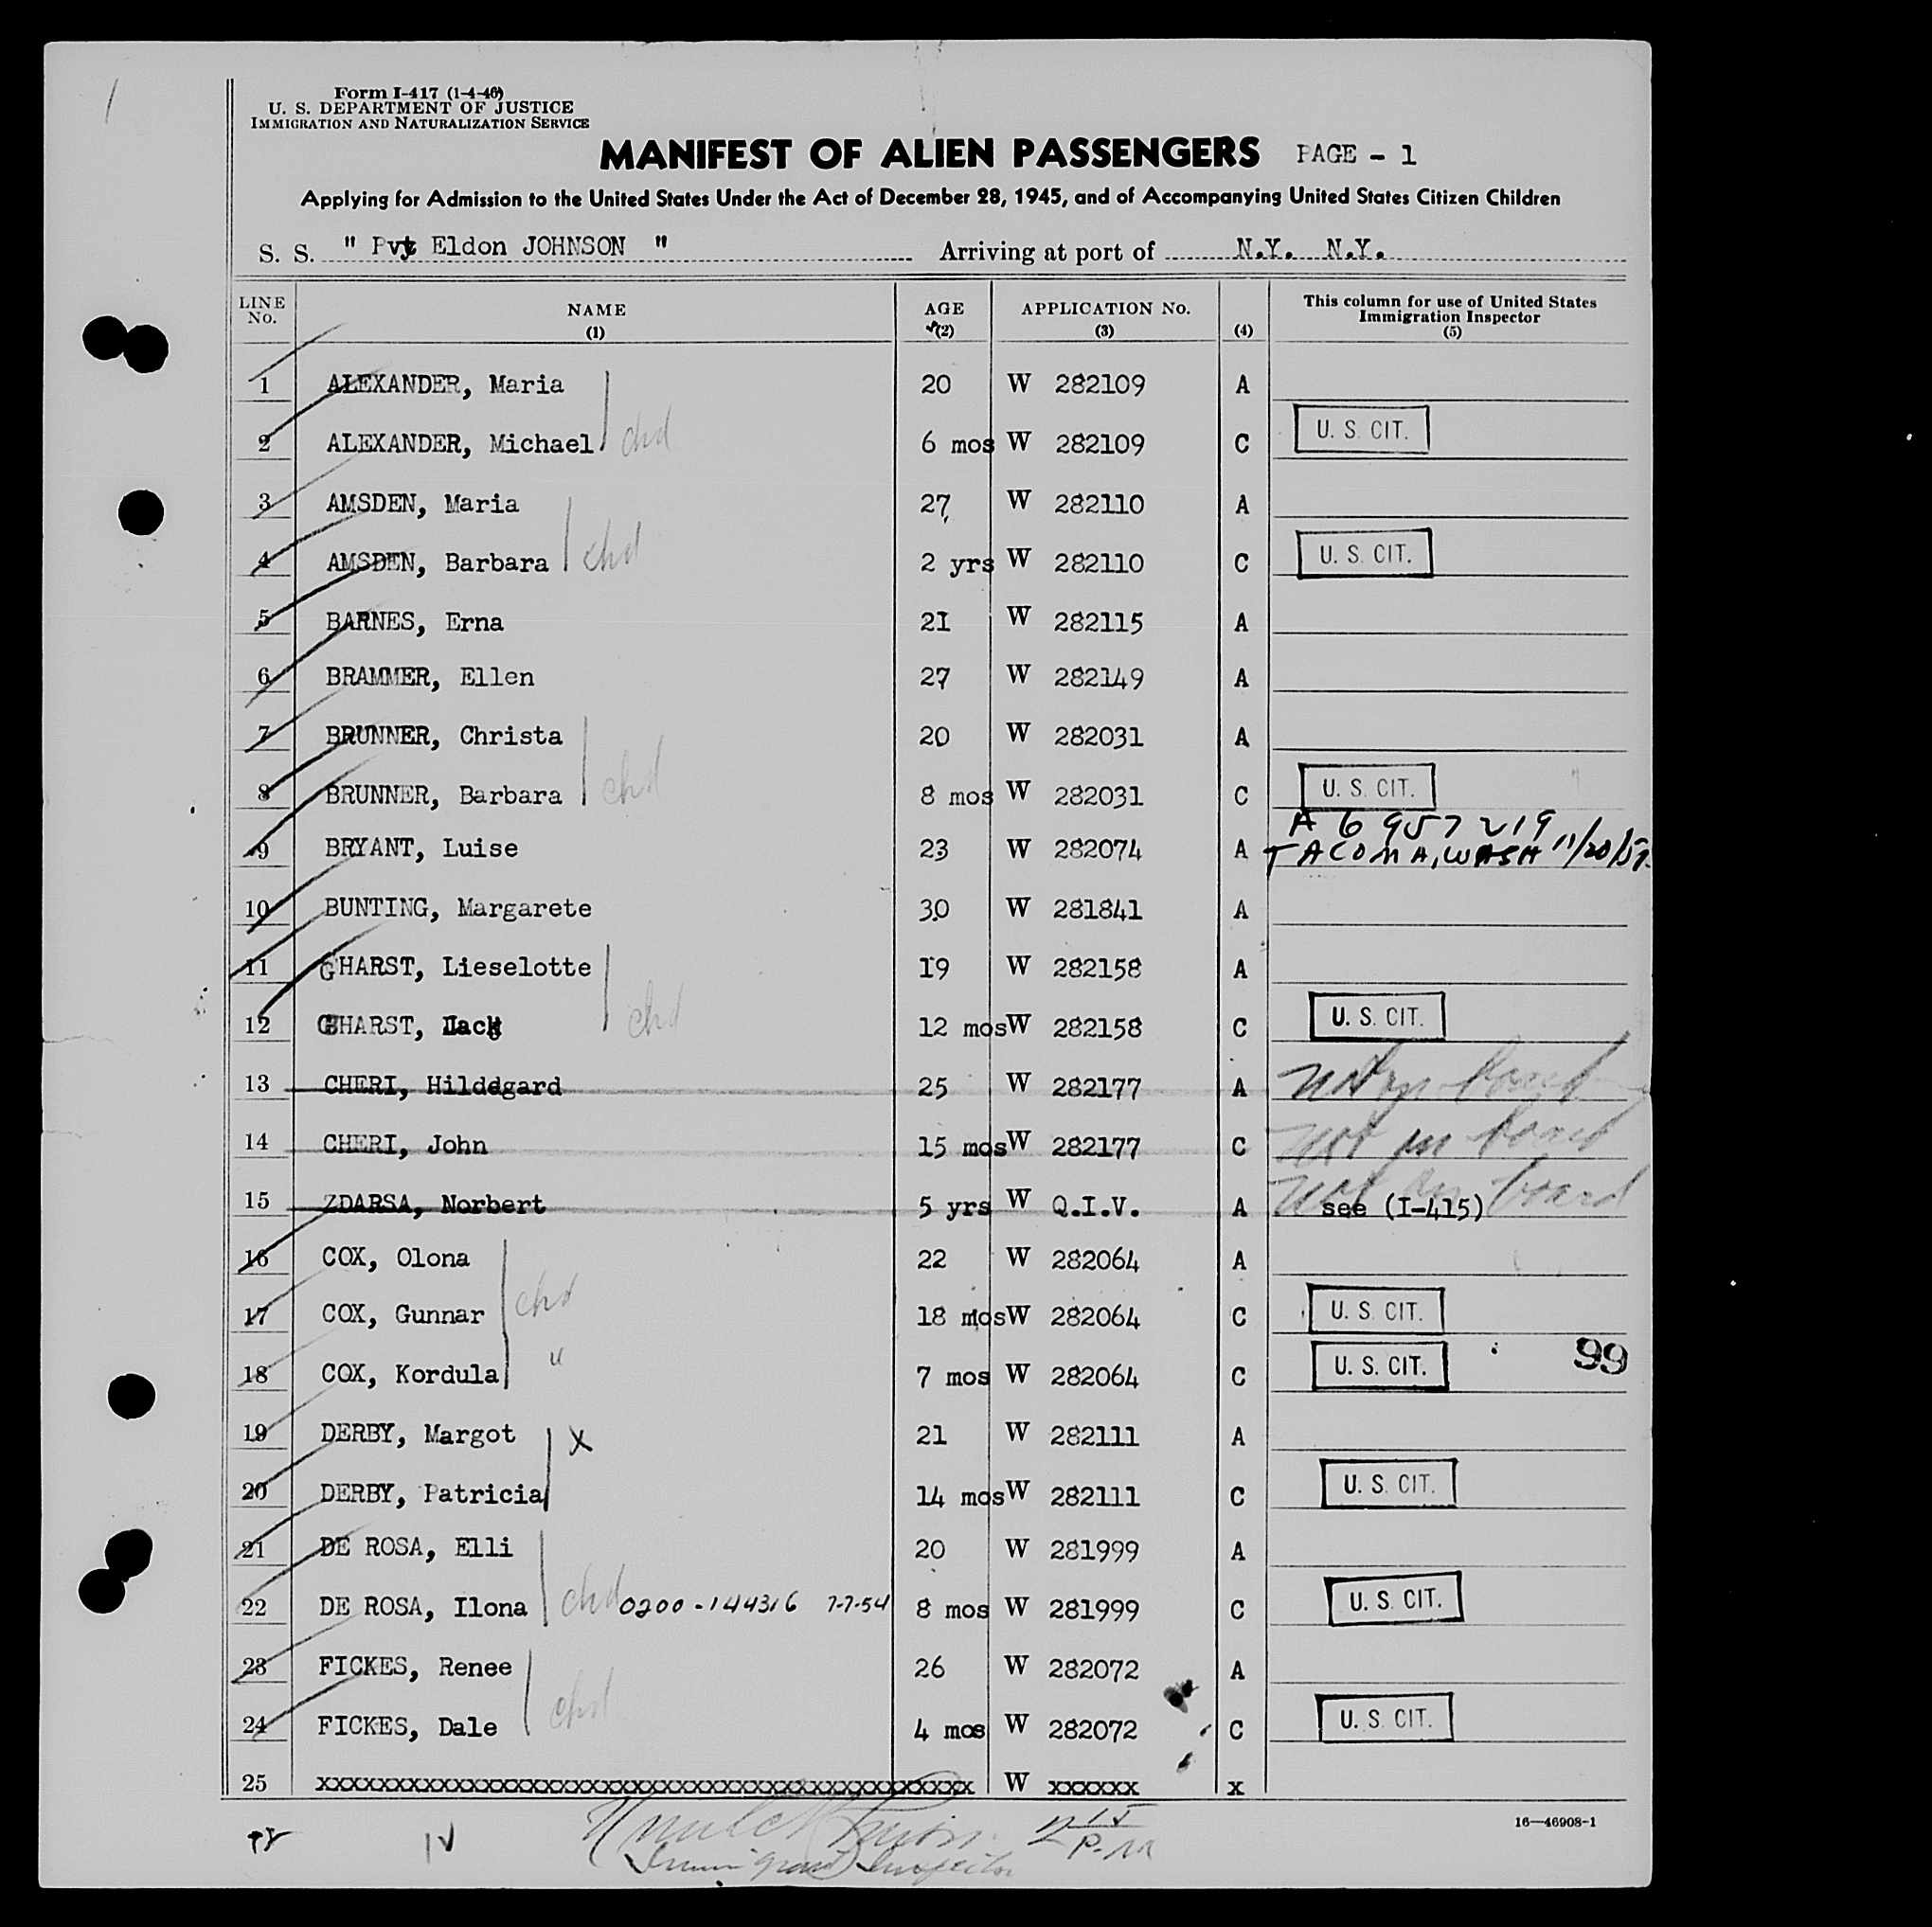 Form I-417 (1-4-46)
U. S. DEPARTMENT OF JUSTICE
IMMIGRATION AND NATURALIZATION SERVICE
MANIFEST OF ALIEN PASSENGERS PAGE - 1
Applying for Admission to the United States Under the Act of December 28, 1945, and of Accompanying United States Citizen Children
S. S. " Pvt Eldon JOHNSON " Arriving at port of N.Y. N.Y.
LINE No. NAME (1) AGE (2) APPLICATION No. (3) (4) This column for use of United States Immigration Inspector (5)
1 ALEXANDER, Maria 20 W 282109 A
2 ALEXANDER, Michael chd 6 mos W 282109 C U. S. CIT.
3 AMSDEN, Maria 27 W 282110 A
4 AMSDEN, Barbara chd 2 yrs W 282110 C U. S. CIT.
5 BARNES, Erna 21 W 282115 A
6 BRAMMER, Ellen 27 W 282149 A
7 BRUNNER, Christa 20 W 282031 A
8 BRUNNER, Barbara chd 8 mos W 282031 C U. S. CIT.
A 6 957 219
9 BRYANT, Luise 23 W 282074 A TACOMA, WASH 11/20/59
10 BUNTING, Margarete 30 W 281841 A
11 GHARST, Lieselotte 19 W 282158 A
12 GHARST, chd 12 mos W 282158 C U. S. CIT.
13 CHERI, Hildegard 25 W 282177 A not on board
14 CHERI, John 15 mos W 282177 C not on board
15 ZDARSA, Norbert 5 yrs W Q.I.V. A not on board see (I-415)
16 COX, Olona 22 W 282064 A
17 COX, Gunnar chd 18 mos W 282064 C U. S. CIT.
18 COX, Kordula " 7 mos W 282064 C U. S. CIT. 99
19 DERBY, Margot X 21 W 282111 A
20 DERBY, Patricia 14 mos W 282111 C U. S. CIT.
21 DE ROSA, Elli 20 W 281999 A
22 DE ROSA, Ilona chd 0200-144316 7-7-54 8 mos W 281999 C U. S. CIT.
23 FICKES, Renee 26 W 282072 A
24 FICKES, Dale chd 4 mos W 282072 C U. S. CIT.
25 xxxxxxxxxxxxxxxxxxxxxxxxxxxxxxxxxxxxxxxxxxx W xxxxxx x
16—46908-1
2 15 P.M
Immigrant Inspector